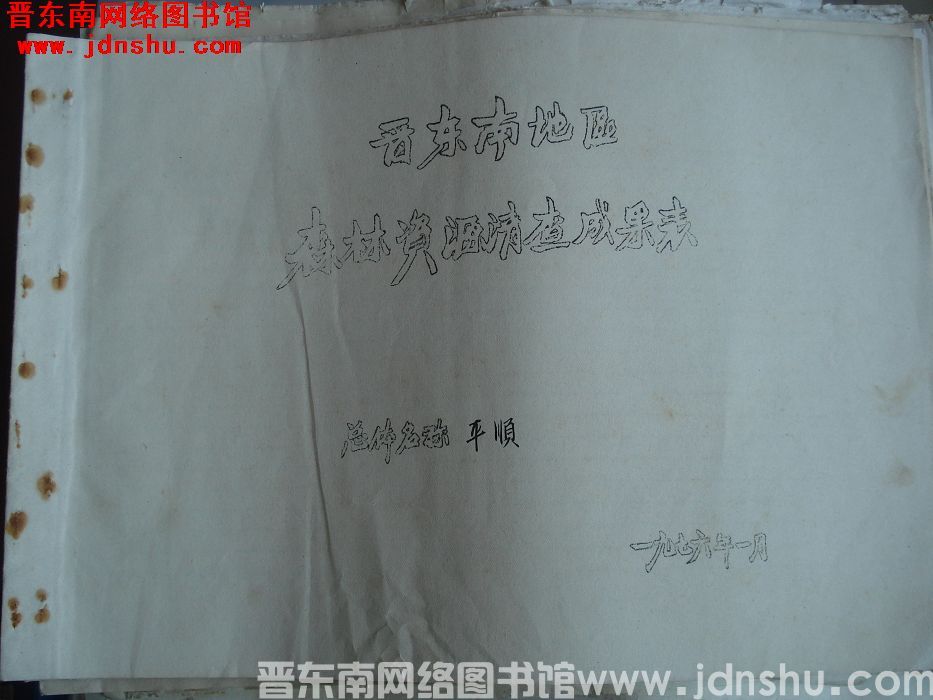 晋东南网络图书馆
www. jdnshu.com
晋东南地區
森林资源清查成果表
总体名称 平順
一九七六年一月
晋东南网络图书馆 www.jdnshu.com